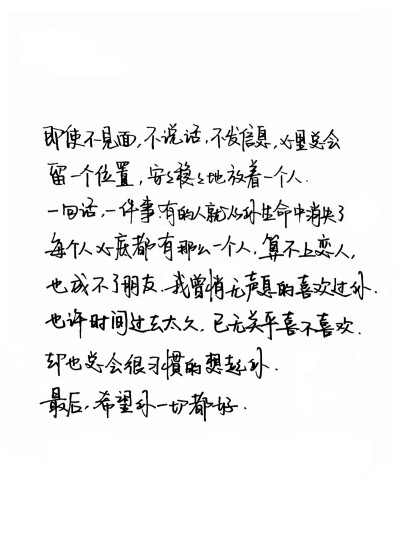 即使不见面,不说话,不发信息,心里总会
留一个位置,安安稳稳地放着一个人.
一句话,一件事有的人就从你生命中消失了
每个人心底都有那么一个人,算不上恋人,
也成不了朋友.我曾悄无声息的喜欢过你.
也许时间过去太久,已无关乎喜不喜欢.
却也总会很习惯的想起你.
最后,希望你一切都好.